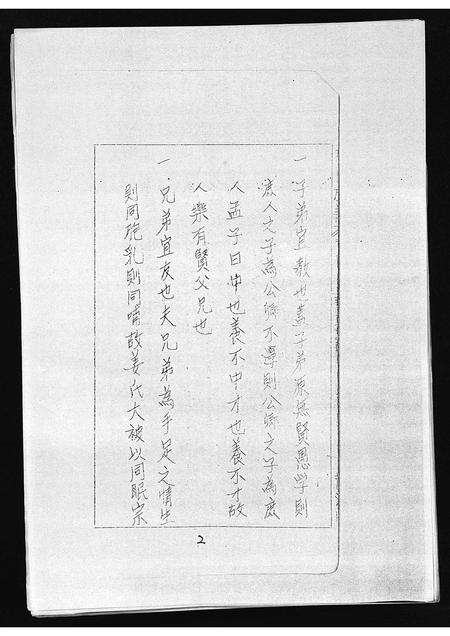 一子弟宜教也蓋子弟原無賢愚学則
庶人之子為公卿不學則公卿之子為庶
人孟子曰中也養不中才也養不才故
人樂有賢父兄也
一兄弟宜友也夫兄弟為手足之情生
則同胞乳則同哺故姜氏大被以同眠宗
2